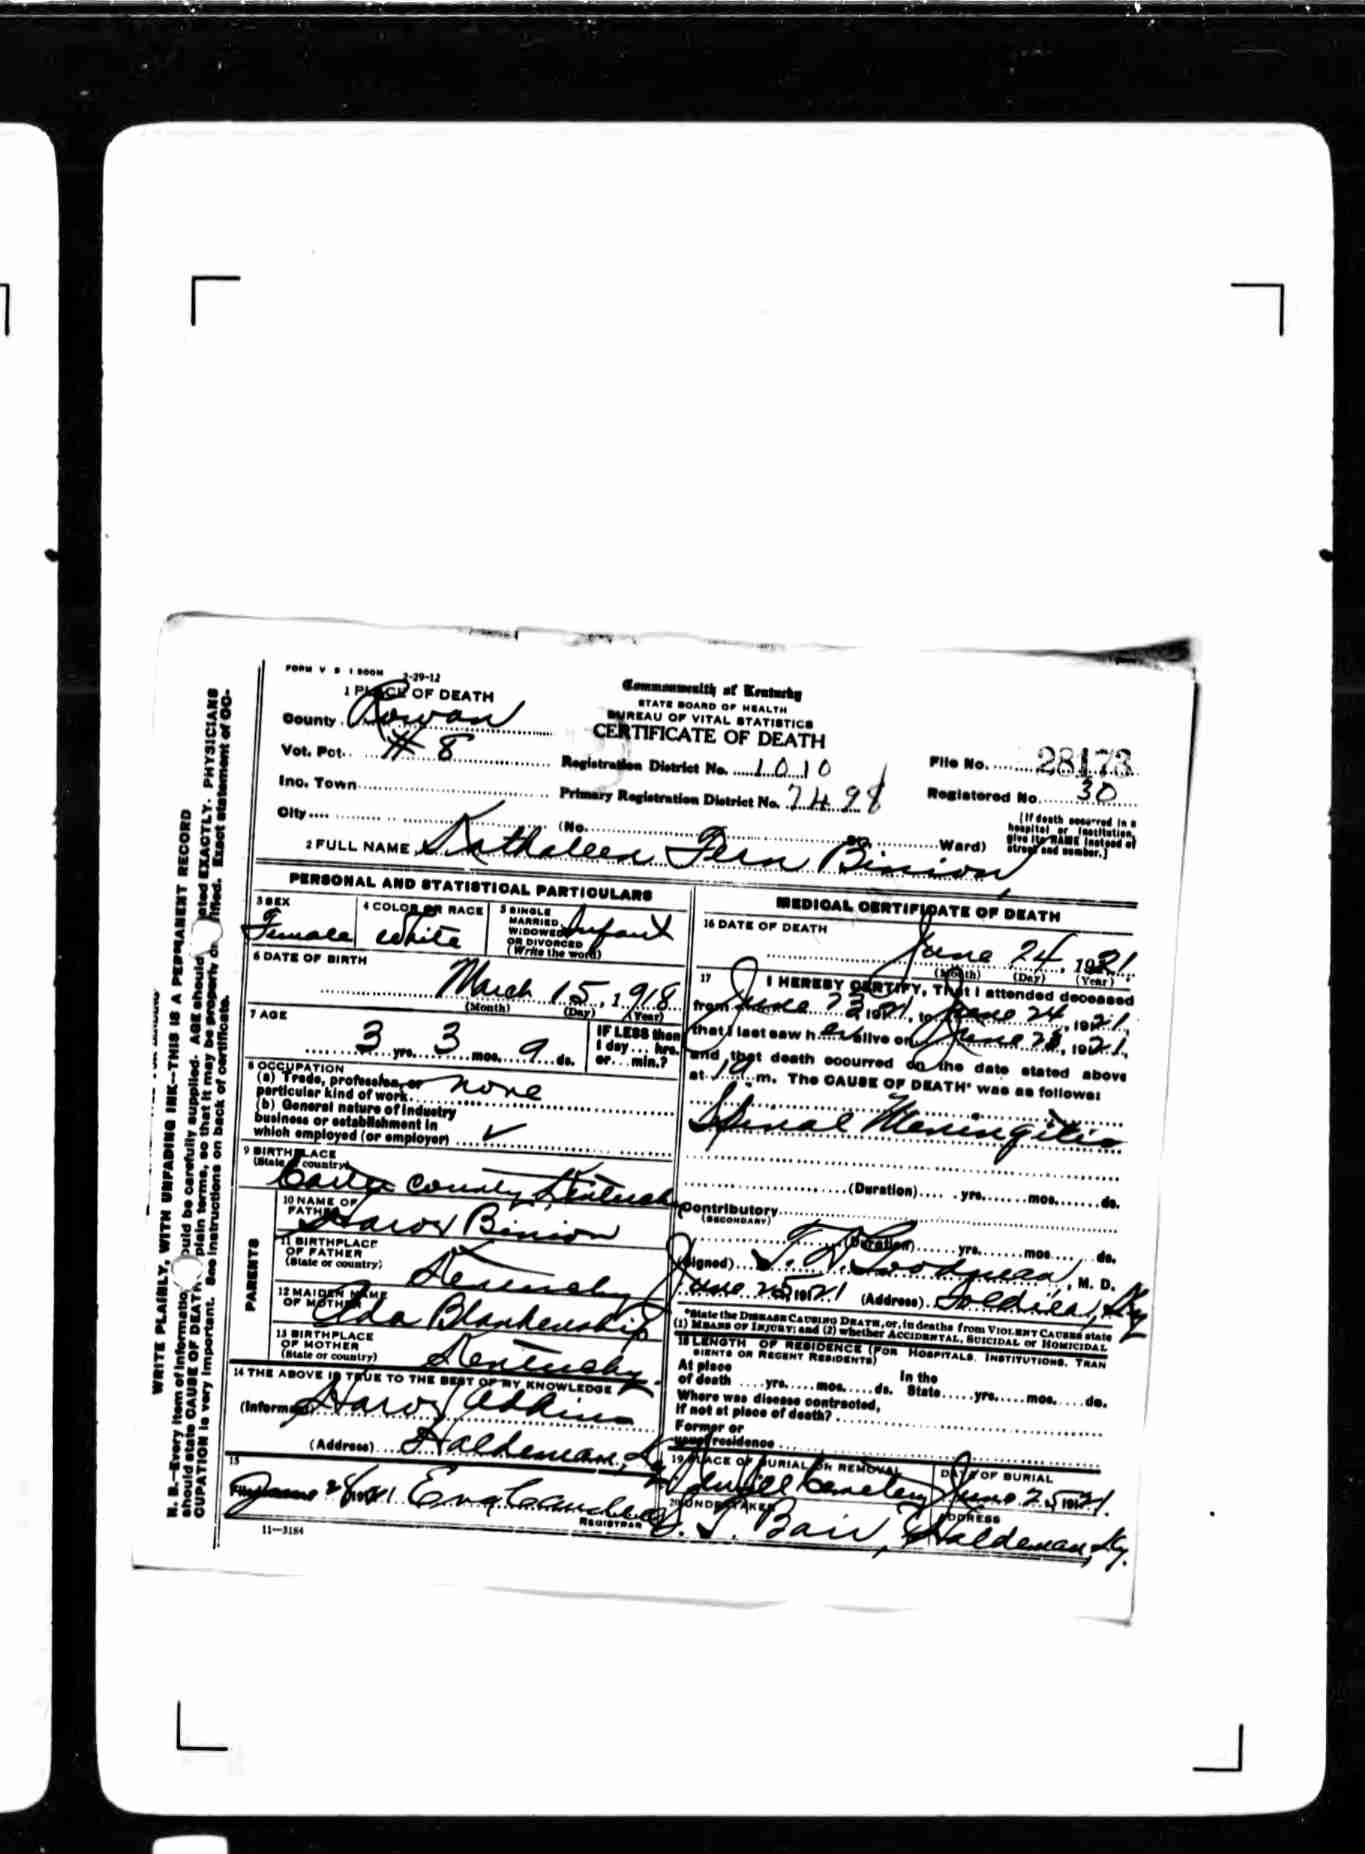 FORM V S 1 500M 2-29-12
Commonwealth of Kentucky
STATE BOARD OF HEALTH
BUREAU OF VITAL STATISTICS
CERTIFICATE OF DEATH
1 PLACE OF DEATH
County Rowan
Vot. Pct. #8
Inc. Town
City (No. Ward)
Registration District No. 1010
Primary Registration District No. 7498
File No. 28173
Registered No. 30
[If death occurred in a
hospital or institution,
give its NAME instead of
street and number.]
2 FULL NAME Kathaleen Fern Binion
PERSONAL AND STATISTICAL PARTICULARS
3 SEX
Female
4 COLOR OR RACE
White
5 SINGLE
MARRIED
WIDOWED
OR DIVORCED
(Write the word)
Infant
6 DATE OF BIRTH
March 15, 1918
(Month) (Day) (Year)
7 AGE
3 yrs. 3 mos. 9 ds.
IF LESS than
1 day... hrs.
or... min.?
8 OCCUPATION
(a) Trade, profession, or
particular kind of work none
(b) General nature of industry
business or establishment in
which employed (or employer) ✓
9 BIRTHPLACE
(State or country)
Carter County, Kentucky
PARENTS
10 NAME OF
FATHER
Binion
11 BIRTHPLACE
OF FATHER
(State or country)
Kentucky
12 MAIDEN NAME
OF MOTHER
Ada Blankenship
13 BIRTHPLACE
OF MOTHER
(State or country)
Kentucky
14 THE ABOVE IS TRUE TO THE BEST OF MY KNOWLEDGE
(Informant) Adkins
(Address) Haldeman, Ky
15
Filed June 28 1921
REGISTRAR
11—3184
MEDICAL CERTIFICATE OF DEATH
16 DATE OF DEATH
June 24, 1921
(Month) (Day) (Year)
17 I HEREBY CERTIFY, That I attended deceased
from June 23, 1921, to June 24, 1921,
that I last saw her alive on June 23, 1921,
and that death occurred on the date stated above
at m. The CAUSE OF DEATH* was as follows:
Spinal Meningitis
(Duration) yrs. mos. ds.
Contributory
(SECONDARY)
(Duration) yrs. mos. ds.
(Signed) , M. D.
June 25, 1921 (Address) Soldier, Ky
*State the DISEASE CAUSING DEATH, or, in deaths from VIOLENT CAUSES state
(1) MEANS OF INJURY; and (2) whether ACCIDENTAL, SUICIDAL or HOMICIDAL
18 LENGTH OF RESIDENCE (FOR HOSPITALS, INSTITUTIONS, TRAN
SIENTS OR RECENT RESIDENTS)
At place In the
of death yrs. mos. ds. State yrs. mos. ds.
Where was disease contracted,
if not at place of death?
Former or
usual residence
19 PLACE OF BURIAL OR REMOVAL
Cemetery
DATE OF BURIAL
June 25, 1921
20 UNDERTAKER
T. Bair
ADDRESS
Haldeman, Ky.
WRITE PLAINLY, WITH UNFADING INK—THIS IS A PERMANENT RECORD
N. B.—Every item of information should be carefully supplied. AGE should stated EXACTLY. PHYSICIANS
should state CAUSE OF DEATH plain terms, so that it may be properly
CUPATION is very important. See instructions on back of certificate. Exact statement of OC-